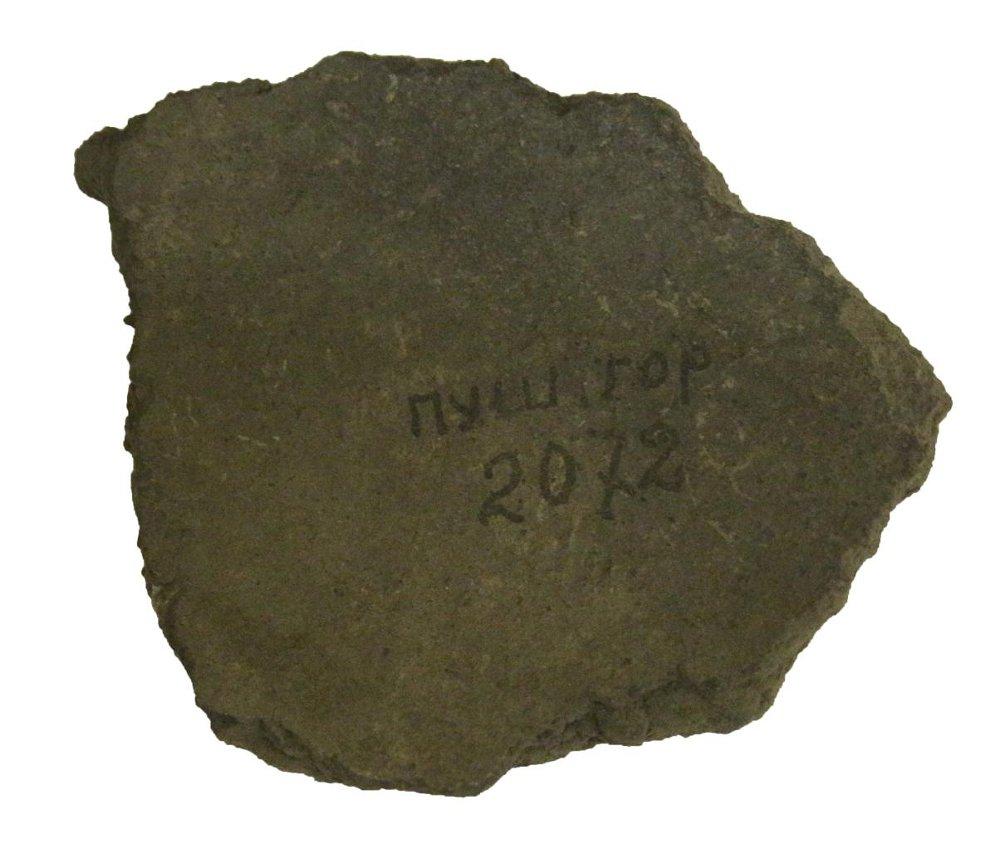 пуш. гор
2072